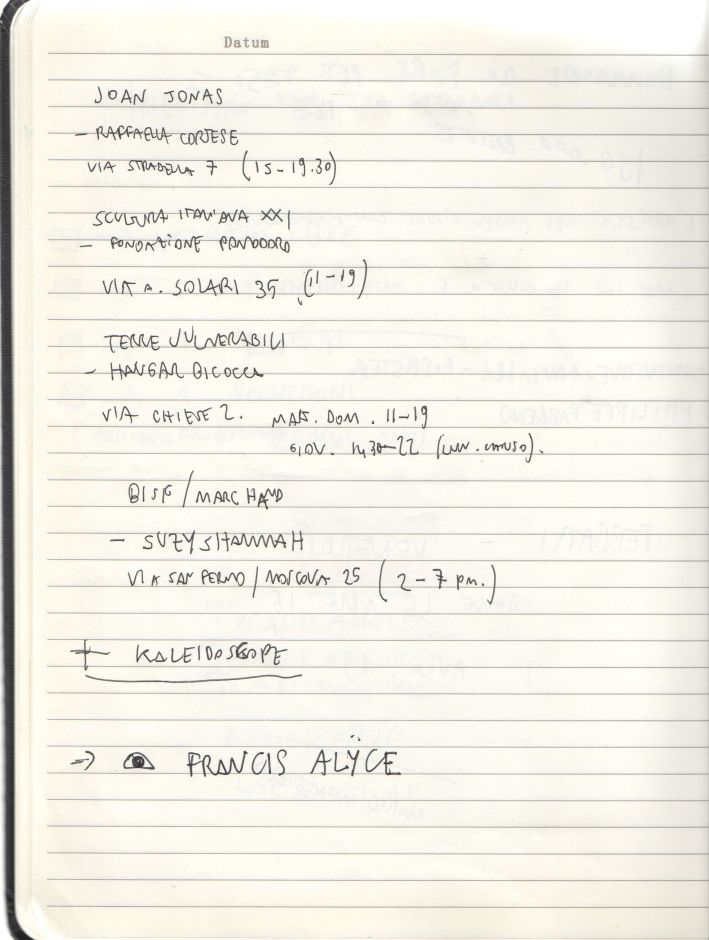 Datum
JOAN JONAS
- RAFFAELLA CORTESE
VIA STRADELLA 7 (15-19.30)
SCULTURA ITALIANA XXI
- FONDAZIONE POMODORO
VIA A. SOLARI 35 (11-19)
TERRE VULNERABILI
- HANGAR BICOCCA
VIA CHIESE 2. MAR. DOM. 11-19
GIOV. 14,30-22 (LUN. CHIUSO).
/ MARCHAND
- SUZY SHAMMAH
VIA SAN FERMO / MOSCOVA 25 (2-7 pm.)
+ KALEIDOSCOPE
=> FRANCIS ALŸCE